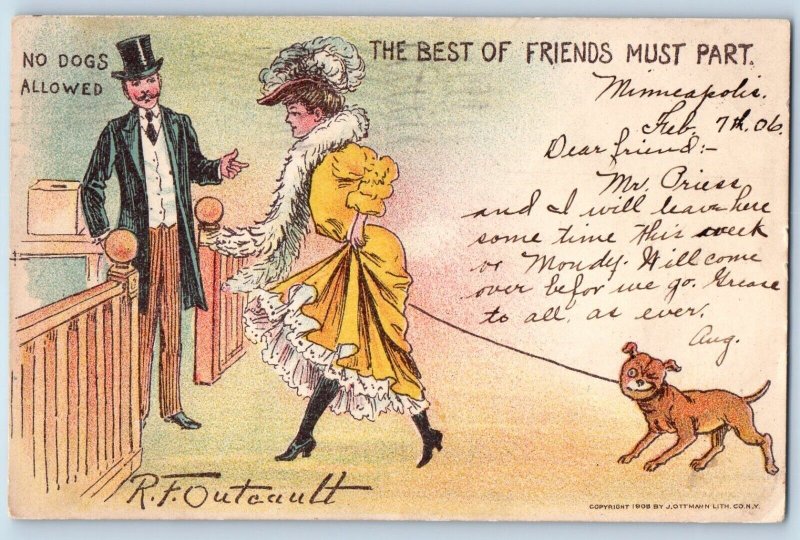 NO DOGS
ALLOWED
THE BEST OF FRIENDS MUST PART.
Minneapolis.
Feb. 7th. 06.
Dear friend:-
Mr. Priess
and I will leave here
some time this week
or Mondy. Will come
over befor we go.
to all. as ever.
Aug.
R.F. Outcault
COPYRIGHT 1905 BY J. OTTMANN LITH. CO. N.Y.